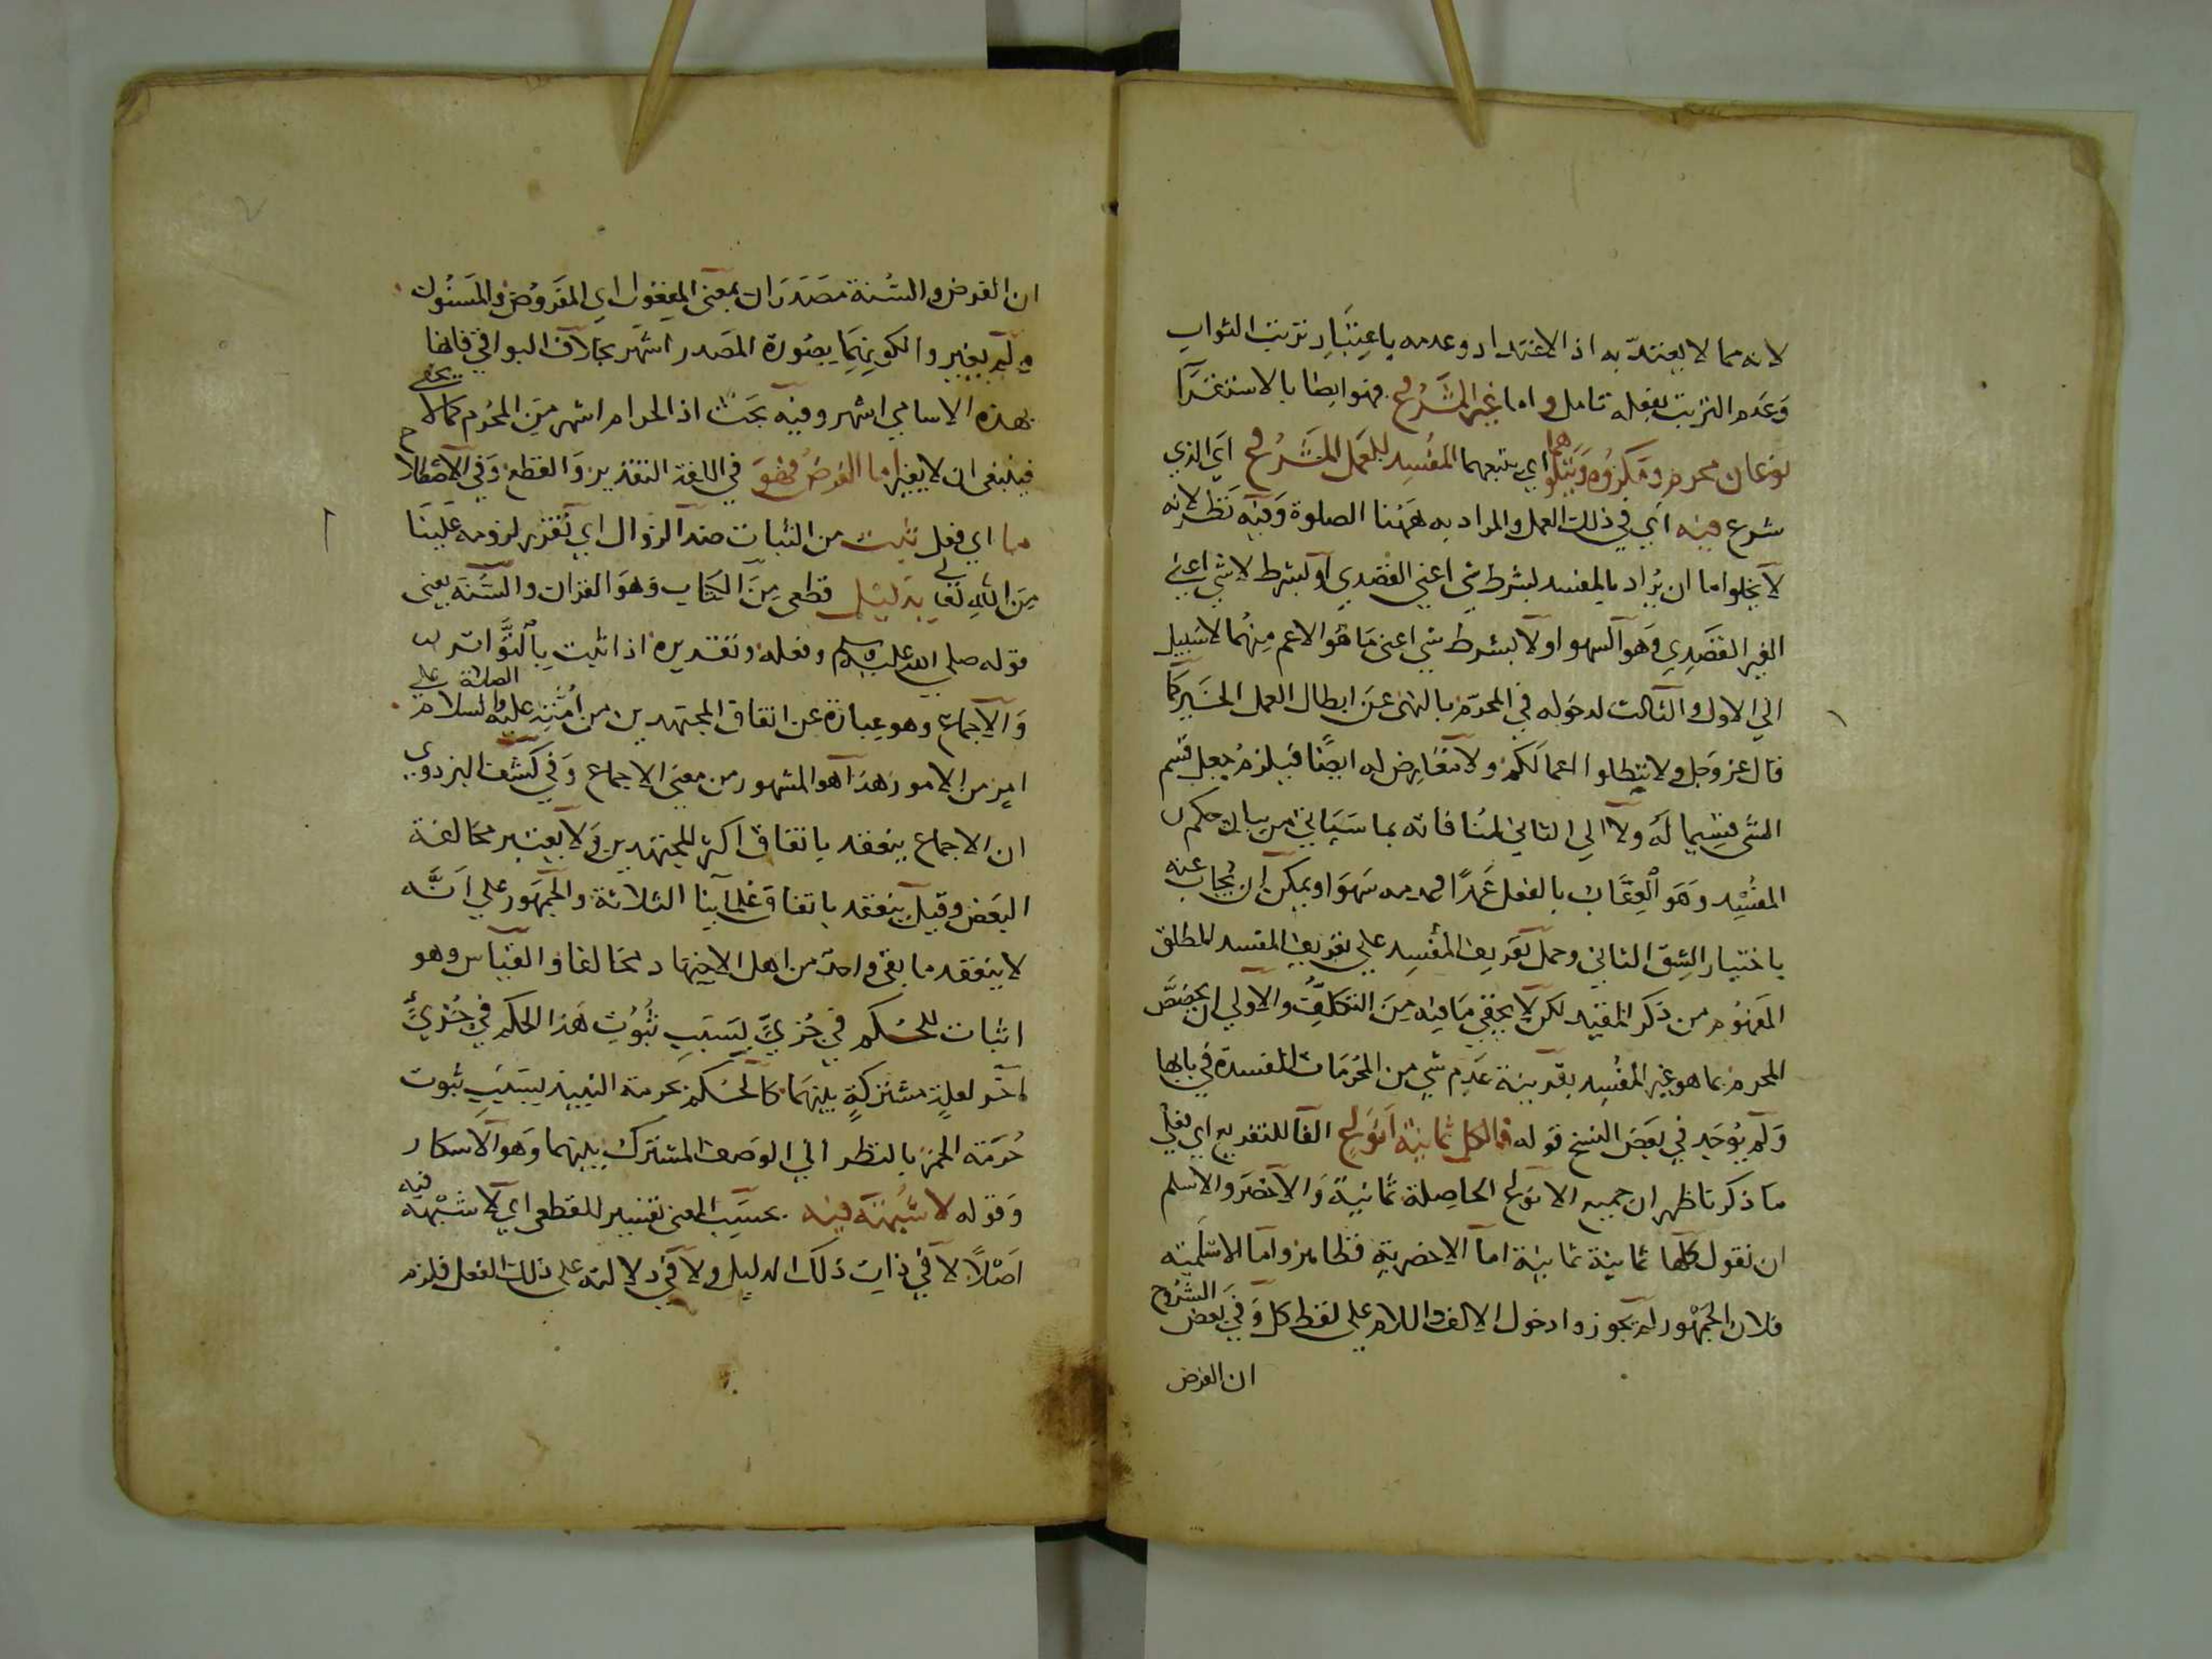 لانه مما لا يعتدّ به اذ الاعتداد وعدمه باعتبار ترتب الثواب
وعدم الترتب بفعله تامل واما غير المشروع فهو ايضا بالاستقراء
نوعان محرم ومكروه ويتلوهما اي يتبعهما المفسد للعمل المشروع اي الذي
شرع فيه اي في ذلك العمل والمراد به ههنا الصلوة وفيه نظر لانه
لا يخلوا اما ان يراد بالمفسد بشرط شي اعني القصدي او بشرط لا شي اعني
الغير القصدي وهو السهو او لا بشرط شي اعني ما هو الاعم منهما لا سبيل
الي الاول والثالث لدخوله في المحرم بالنهي عن ابطال العمل الخير كما
قال عز وجل ولا تبطلوا اعمالكم ولا تعارض له ايضا فيلزم جعل قسم
الشي قسيما له ولا الي الثاني لمنافاته بما سياتي من بيان حكم
المفسد وهو العقاب بالفعل عمدا وعدمه سهوا ويمكن ان يجاب عنه
باختيار الشق الثاني وحمل تعريف المفسد علي تعريف المفسد المطلق
المفهوم من ذكر المقيد لكن لا يخفي ما فيه من التكلف والاولي ان يخصص
المحرم بما هو غير المفسد بقرينة عدم شي من المحرمات المفسدة في بابها
ولم يوجد في بعض النسخ قوله فالكل ثمانية انواع الفا للتفريع اي فعلي
ما ذكرنا ظهر ان جميع الانواع الحاصلة ثمانية والاخصر والاسلم
ان نقول كلها ثمانية ثمانية اما الاخصرية فظاهر واما الاسلمية
فلان الجمهور لم يجوزوا دخول الالف واللام علي لفظ كل وفي بعض الشروح
ان الفرض
ان الفرض والسنة مصدران بمعني المفعول اي المفروض والمسنون
ولم يغير والكونهما بصورة المصدر اشهر بخلاف البواقي فانها
بهذه الاسامي اشهر وفيه بحث اذ الحرام اشهر من المحرم كما لا يخفي
فينبغي ان لا يغير اما الفرض فهو في اللغة التقدير والقطع وفي الاصطلاح
ما اي فعل ثبت من الثبات ضد الزوال اي تقرر لزومه علينا
من الله تعالي بدليل قطعي من الكتاب وهو القران والسنة يعني
قوله صلي الله عليه وسلم وفعله وتقديره اذا ثبت بالتواتر
والاجماع وهو عبارة عن اتفاق المجتهدين من امته عليه الصلاة والسلام علي
امر من الامور هذا هو المشهور من معني الاجماع وفي كشف البزدوي
ان الاجماع ينعقد باتفاق اكثر المجتهدين ولا يعتبر مخالفة
البعض وقيل ينعقد باتفاق علمائنا الثلاثة والجمهور علي انه
لا ينعقد ما بقي واحد من اهل الاجتهاد مخالفا والقياس وهو
اثبات للحكم في جزيّ بسبب ثبوت هذا الحكم في جزيّ
اخر لعلة مشتركة بينهما كالحكم بحرمة النبيذ بسبب ثبوت
حرمة الخمر بالنظر الي الوصف المشترك بينهما وهو الاسكار
وقوله لا شبهة فيه بحسب المعني تفسير للقطعي اي لا شبهة فيه
اصلا لا في ذات ذلك الدليل ولا في دلالته علي ذلك الفعل فلزم